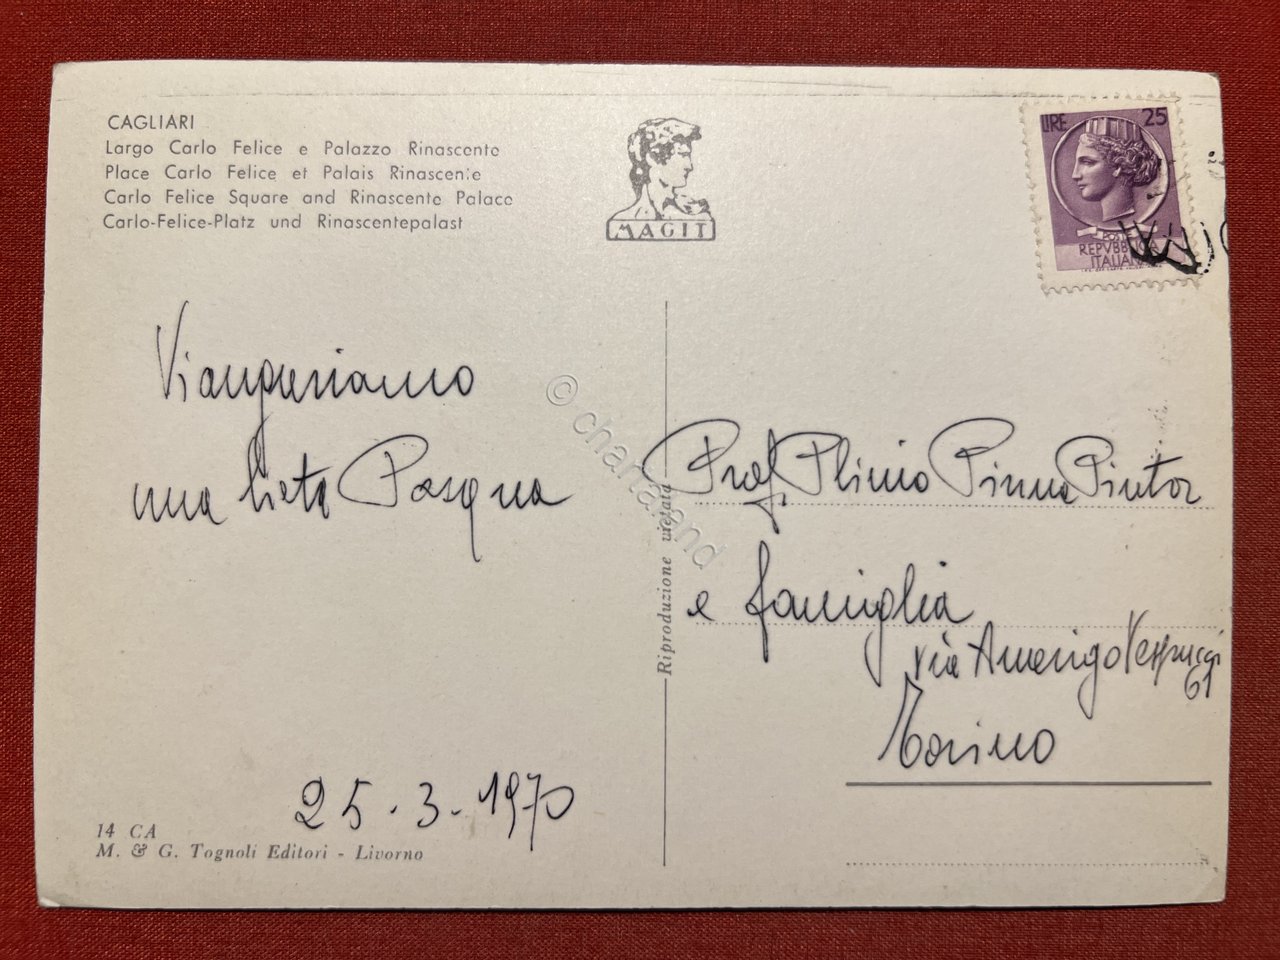 CAGLIARI
Largo Carlo Felice e Palazzo Rinascente
Place Carlo Felice et Palais Rinascente
Carlo Felice Square and Rinascente Palace
Carlo-Felice-Platz und Rinascentepalast
MAGIT
LIRE 25
POSTE
REPVBBLICA
ITALIANA
Vi auguriamo
una lieta Pasqua
25.3.1970
14 CA
M. & G. Tognoli Editori - Livorno
Riproduzione vietata
© chartaland
Prof. Plinio Pinna Pintor
e famiglia
via Amerigo Vespucci
61
Torino